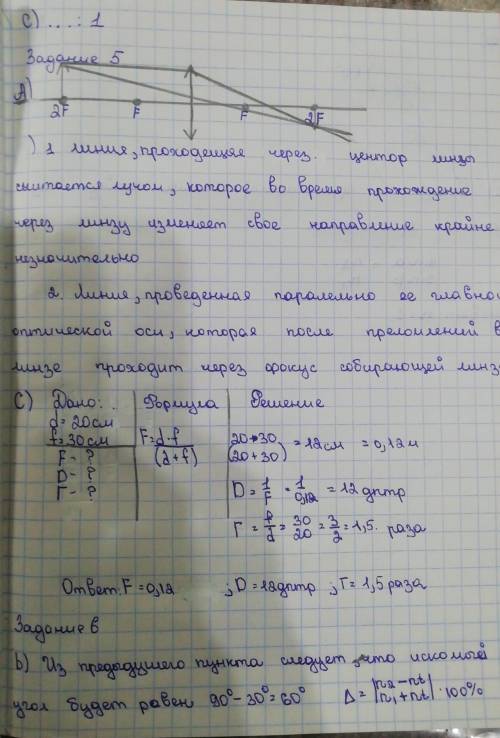 C) ....: 1
Задание 5
А)
2F F F 2F
) 1 линия, проходящяя через. центор линзы
считается лучом, которое во время прохождение
через линзу изменяет свое направление крайне
незначительно
2. Линия, проведенная паралельно ее главной
оптической оси, которая после преломлений в
линзе проходит через фокус собирающей линз
C) Дано: Формула Решение
d = 20см
f = 30см F = d·f/(d+f) 20·30/(20+30) = 12см = 0,12м
F - ?
D - ? D = 1/F = 1/0,12 = 12 дптр
Г - ?
Г = f/d = 30/20 = 3/2 = 1,5. раза
Ответ: F = 0,12 ; D = 12дптр ; Г = 1,5 раза
Задание 6
b) Из предыдущего пункта следует, что искомый
угол будет равен 90° - 30° = 60° Δ = |n2 - nt / n1 + nt| · 100%